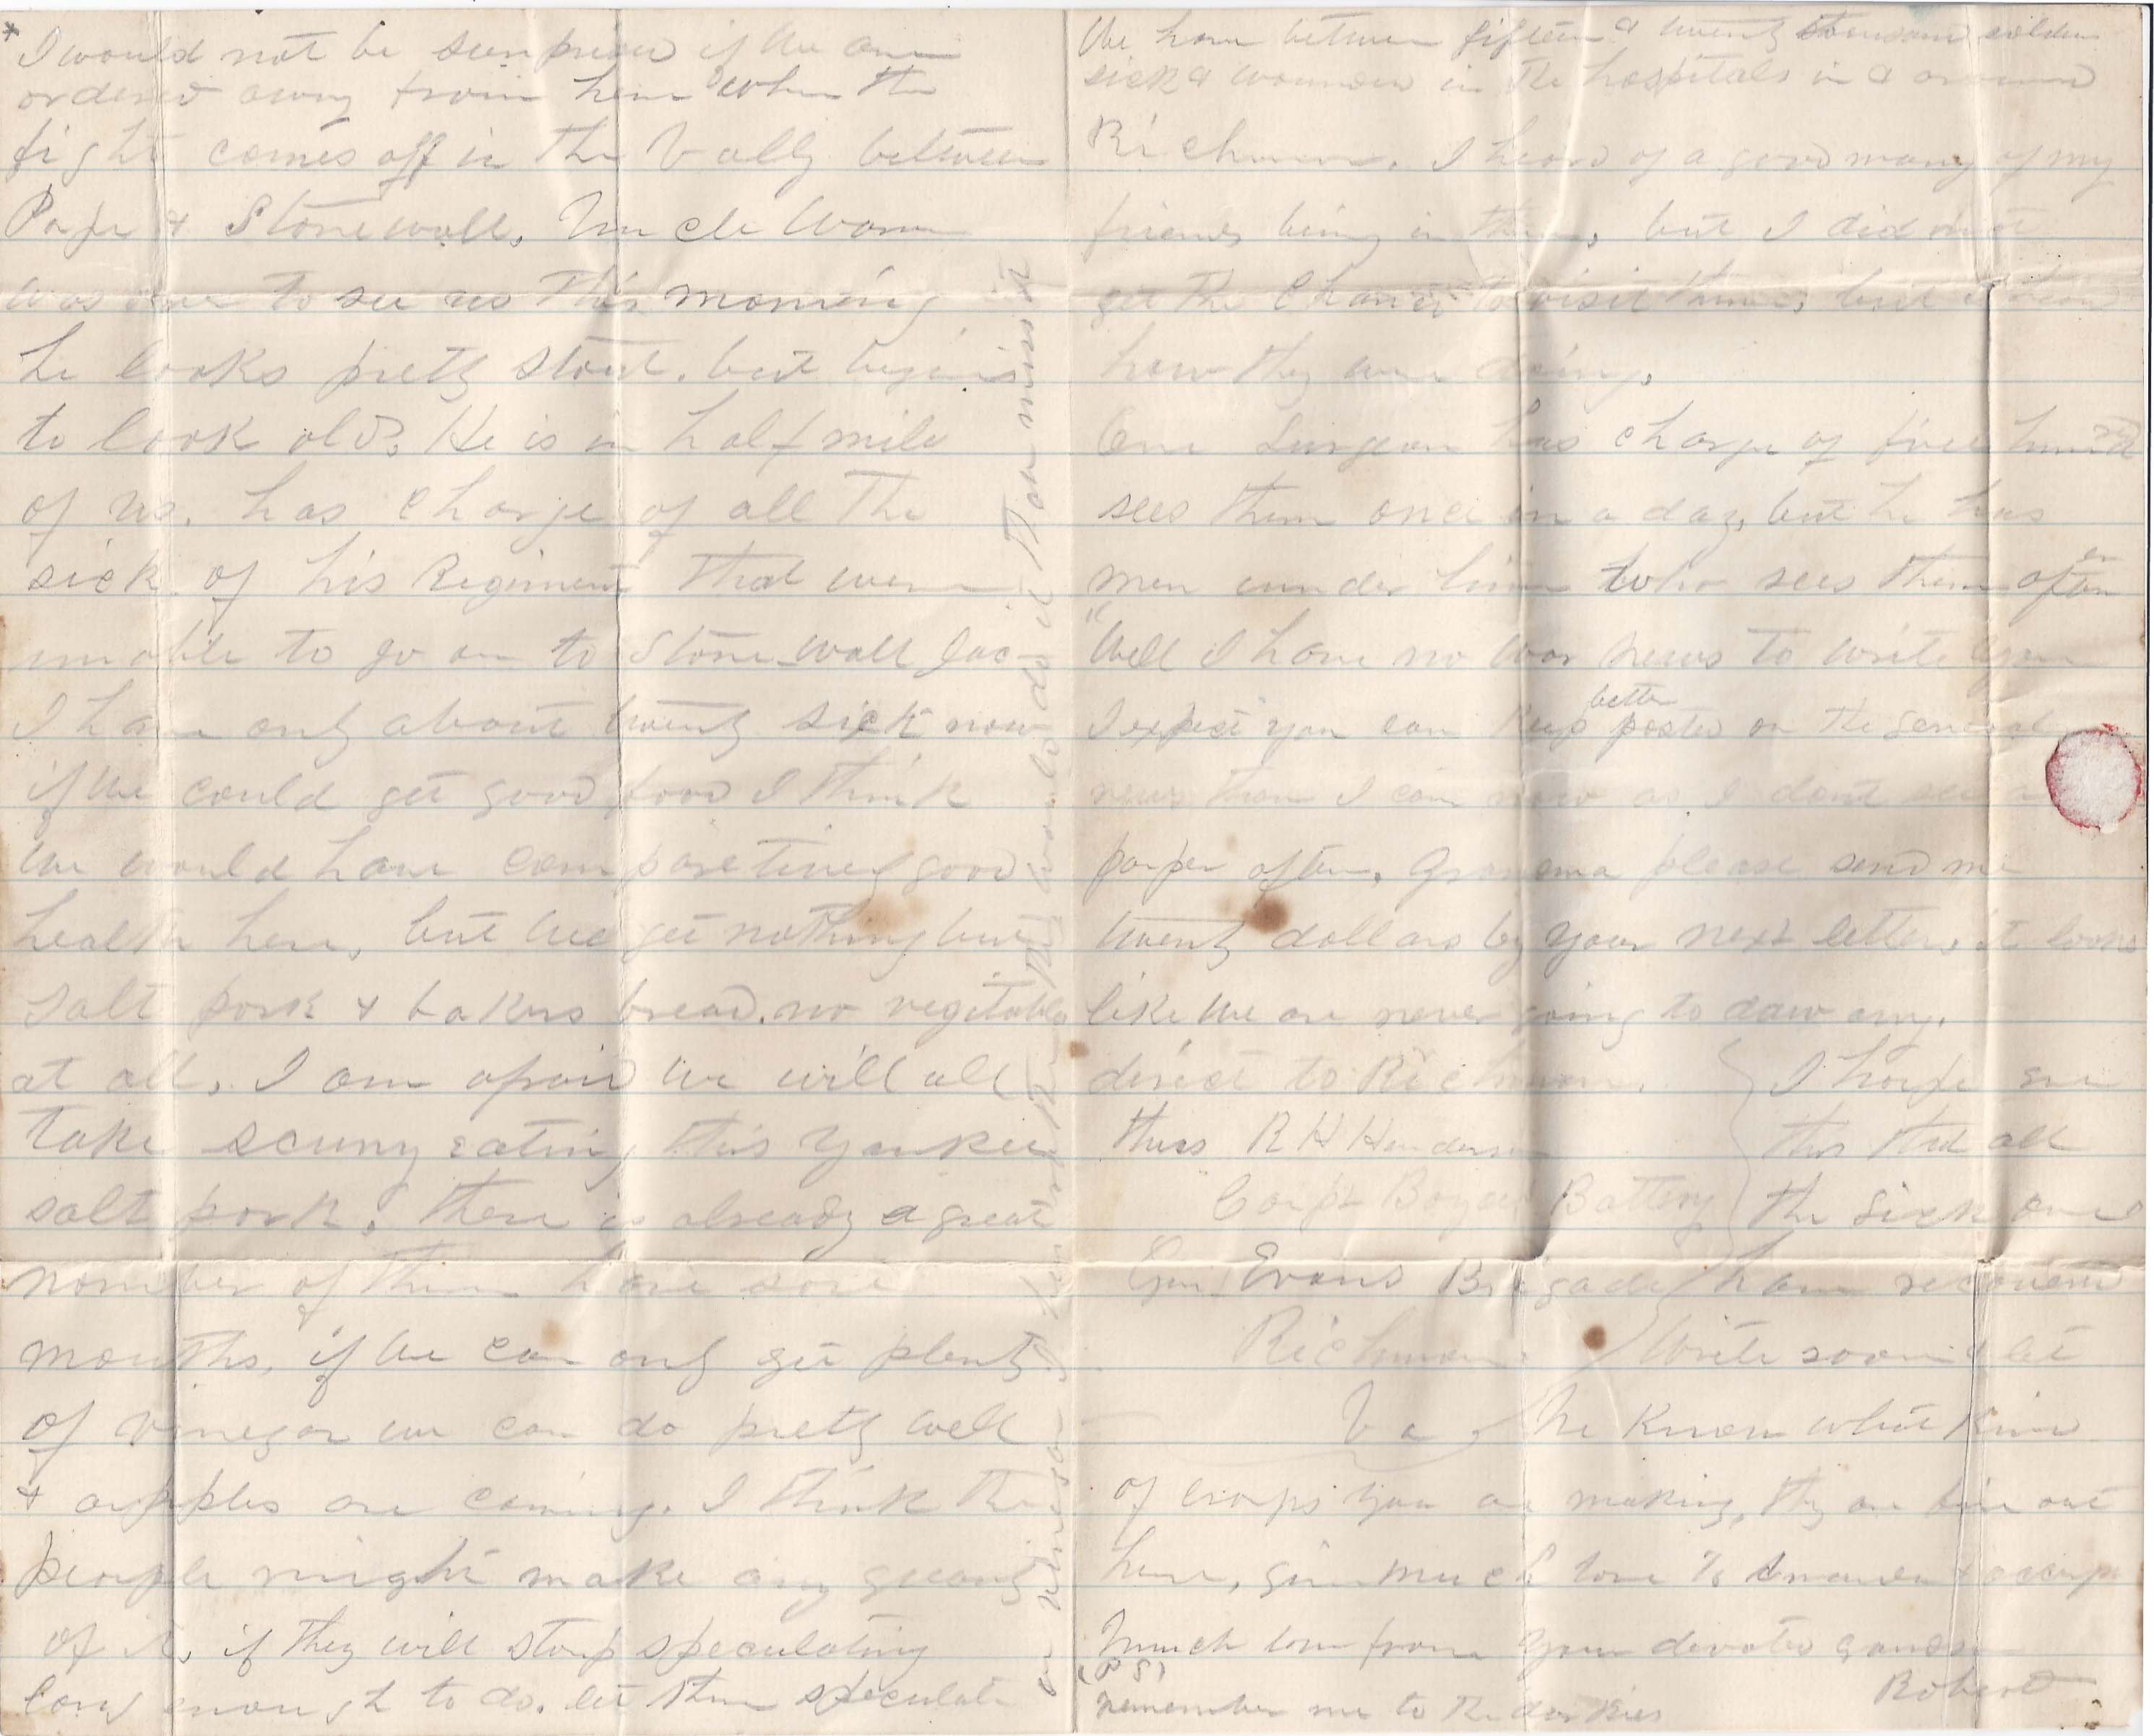 * I would not be surprised if we are
ordered away from here when the
fight comes off in the Vally between
Pope & Stonewall. Uncle
was over to see us this morning
he looks pretty stout. but begins
to look old. He is in half mile
of us. has charge of all the
sick of his Regiment that were
unable to go on to Stonewall Jac-
I have only about twenty sick now
if we could get good food I think
we would have comparetively good
health here, but we get nothing but
salt pork & bakers bread. no vegitables
at all. I am afraid we will all
take scurvy eating this Yankee
salt pork. there is already a great
nomber of them have sore
mouths, if we can only get plenty
of vinegar we can do pretty well
& apples are coming. I think the
people might make any quanty
of it, if they will stop speculating
long enough to do. let them speculate
on vinegar
We have between fifteen & twenty thousand soldiers
sick & wounded in the hospitals in & around
Richmond. I heard of a good many of my
friends being in them, but I did not
get the chance to visit them, but
how they were doing.
One Surgeon has charge of five hundred
sees them once in a day, but he has
men under him who sees them often
"Well I have no war news to write you
I expect you can keep better posted on the general
news than I can now as I dont see a
paper often. Grandma please send me
twenty dollars by your next letter, it looks
like we are never going to daw any.
direct to Richmond.
thus R H Henderson
Corpt Boyces Battery
Gen Evans Brigade
Richmond
Va
I hope ere
this that all
the sick ones
have recoverd
Write soon & let
me know what kind
of crops you are making, they are fine out
here, give much love to & accept
much love from your devoted grandson
Robert
(P S)
remember me to the darkies